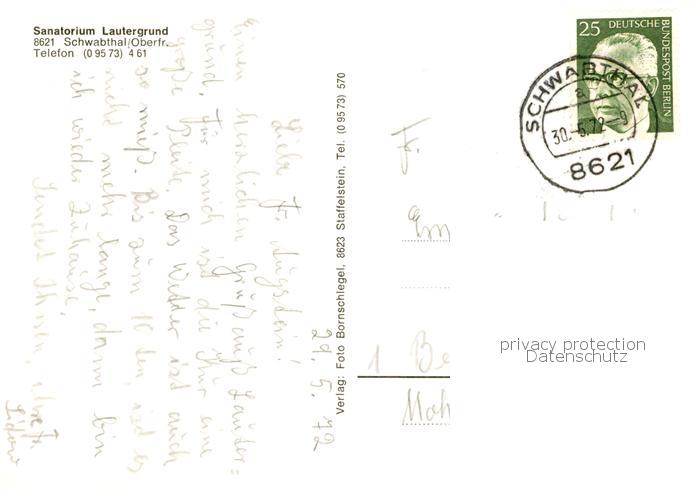 Sanatorium Lautergrund
8621 Schwabthal/Oberfr.
Telefon (0 95 73) 4 61
29. 5. 72
Liebe Fr. Augstein!
Einen herzlichen Gruß aus Lauter=
grund, für mich ist die Kur eine
große Pleite, das Wetter ist auch
so mieß. Bis zum 10 ten, ist es
nicht mehr lange, dann bin
ich wieder Zuhause,
sendet Ihnen, ihre Fr.
Verlag: Foto Bornschlegel, 8623 Staffelstein, Tel. (0 95 73) 570
25 DEUTSCHE
BUNDESPOST BERLIN
SCHWABTHAL
a
30.-5.72-9
8621
F.
Em
1 Be
Moh
privacy protection
Datenschutz